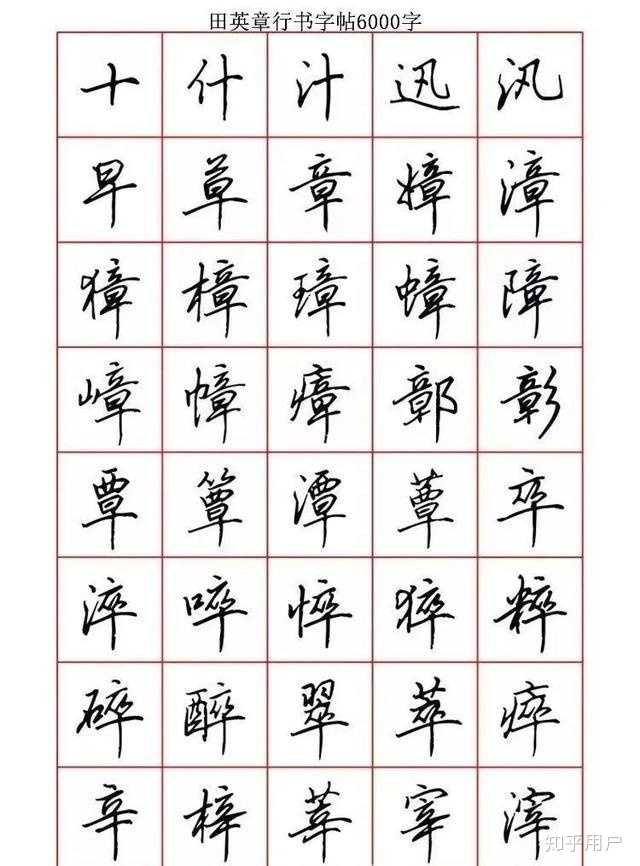 田英章行书字帖6000字
十什汁迅汛
早草章嫜漳
獐樟璋蟑障
嶂幛瘴鄣彰
覃簟潭蕈卒
淬啐悴猝粹
碎醉翠萃瘁
辛梓莘宰滓
知乎用户